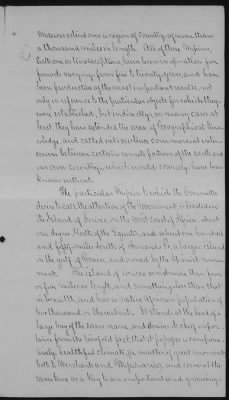 Missions extend over a region of Country, of more than
a thousand miles in length. All of these Missions,
but one or two exceptions, have been in operation for
periods varying from five to twenty years, and have
been productive of the most important results, not
only in reference to the particular objects for which they
were established, but indirectly, in many cases at
least, they have extended the area of Geographical know-
ledge, and called into existence commercial inter-
course between certain remote portions of the Earth and
our own country, which would scarcely have been
known without.
The particular Mission to which the Committee
desire to call the attention of the Government is located on
the Island of Corisco, on the West Coast of Africa, about
one degree North of the Equator, and about one hundred
and fifty miles South of Fernando Po, a larger island
in the gulf of Benin, and owned by the Spanish govern-
ment. The island of Corisco is not more than four
or five miles in length, and something less than that
in breadth, and has a native African population of
two thousand or thereabouts. It stands at the head of a
large bay of the same name, and derives its chief impor-
tance from the fact that it possesses a
healthful climate, a matter of great moment
both to Merchants and Missionaries, and some at the
same time as a Key to an important and growing